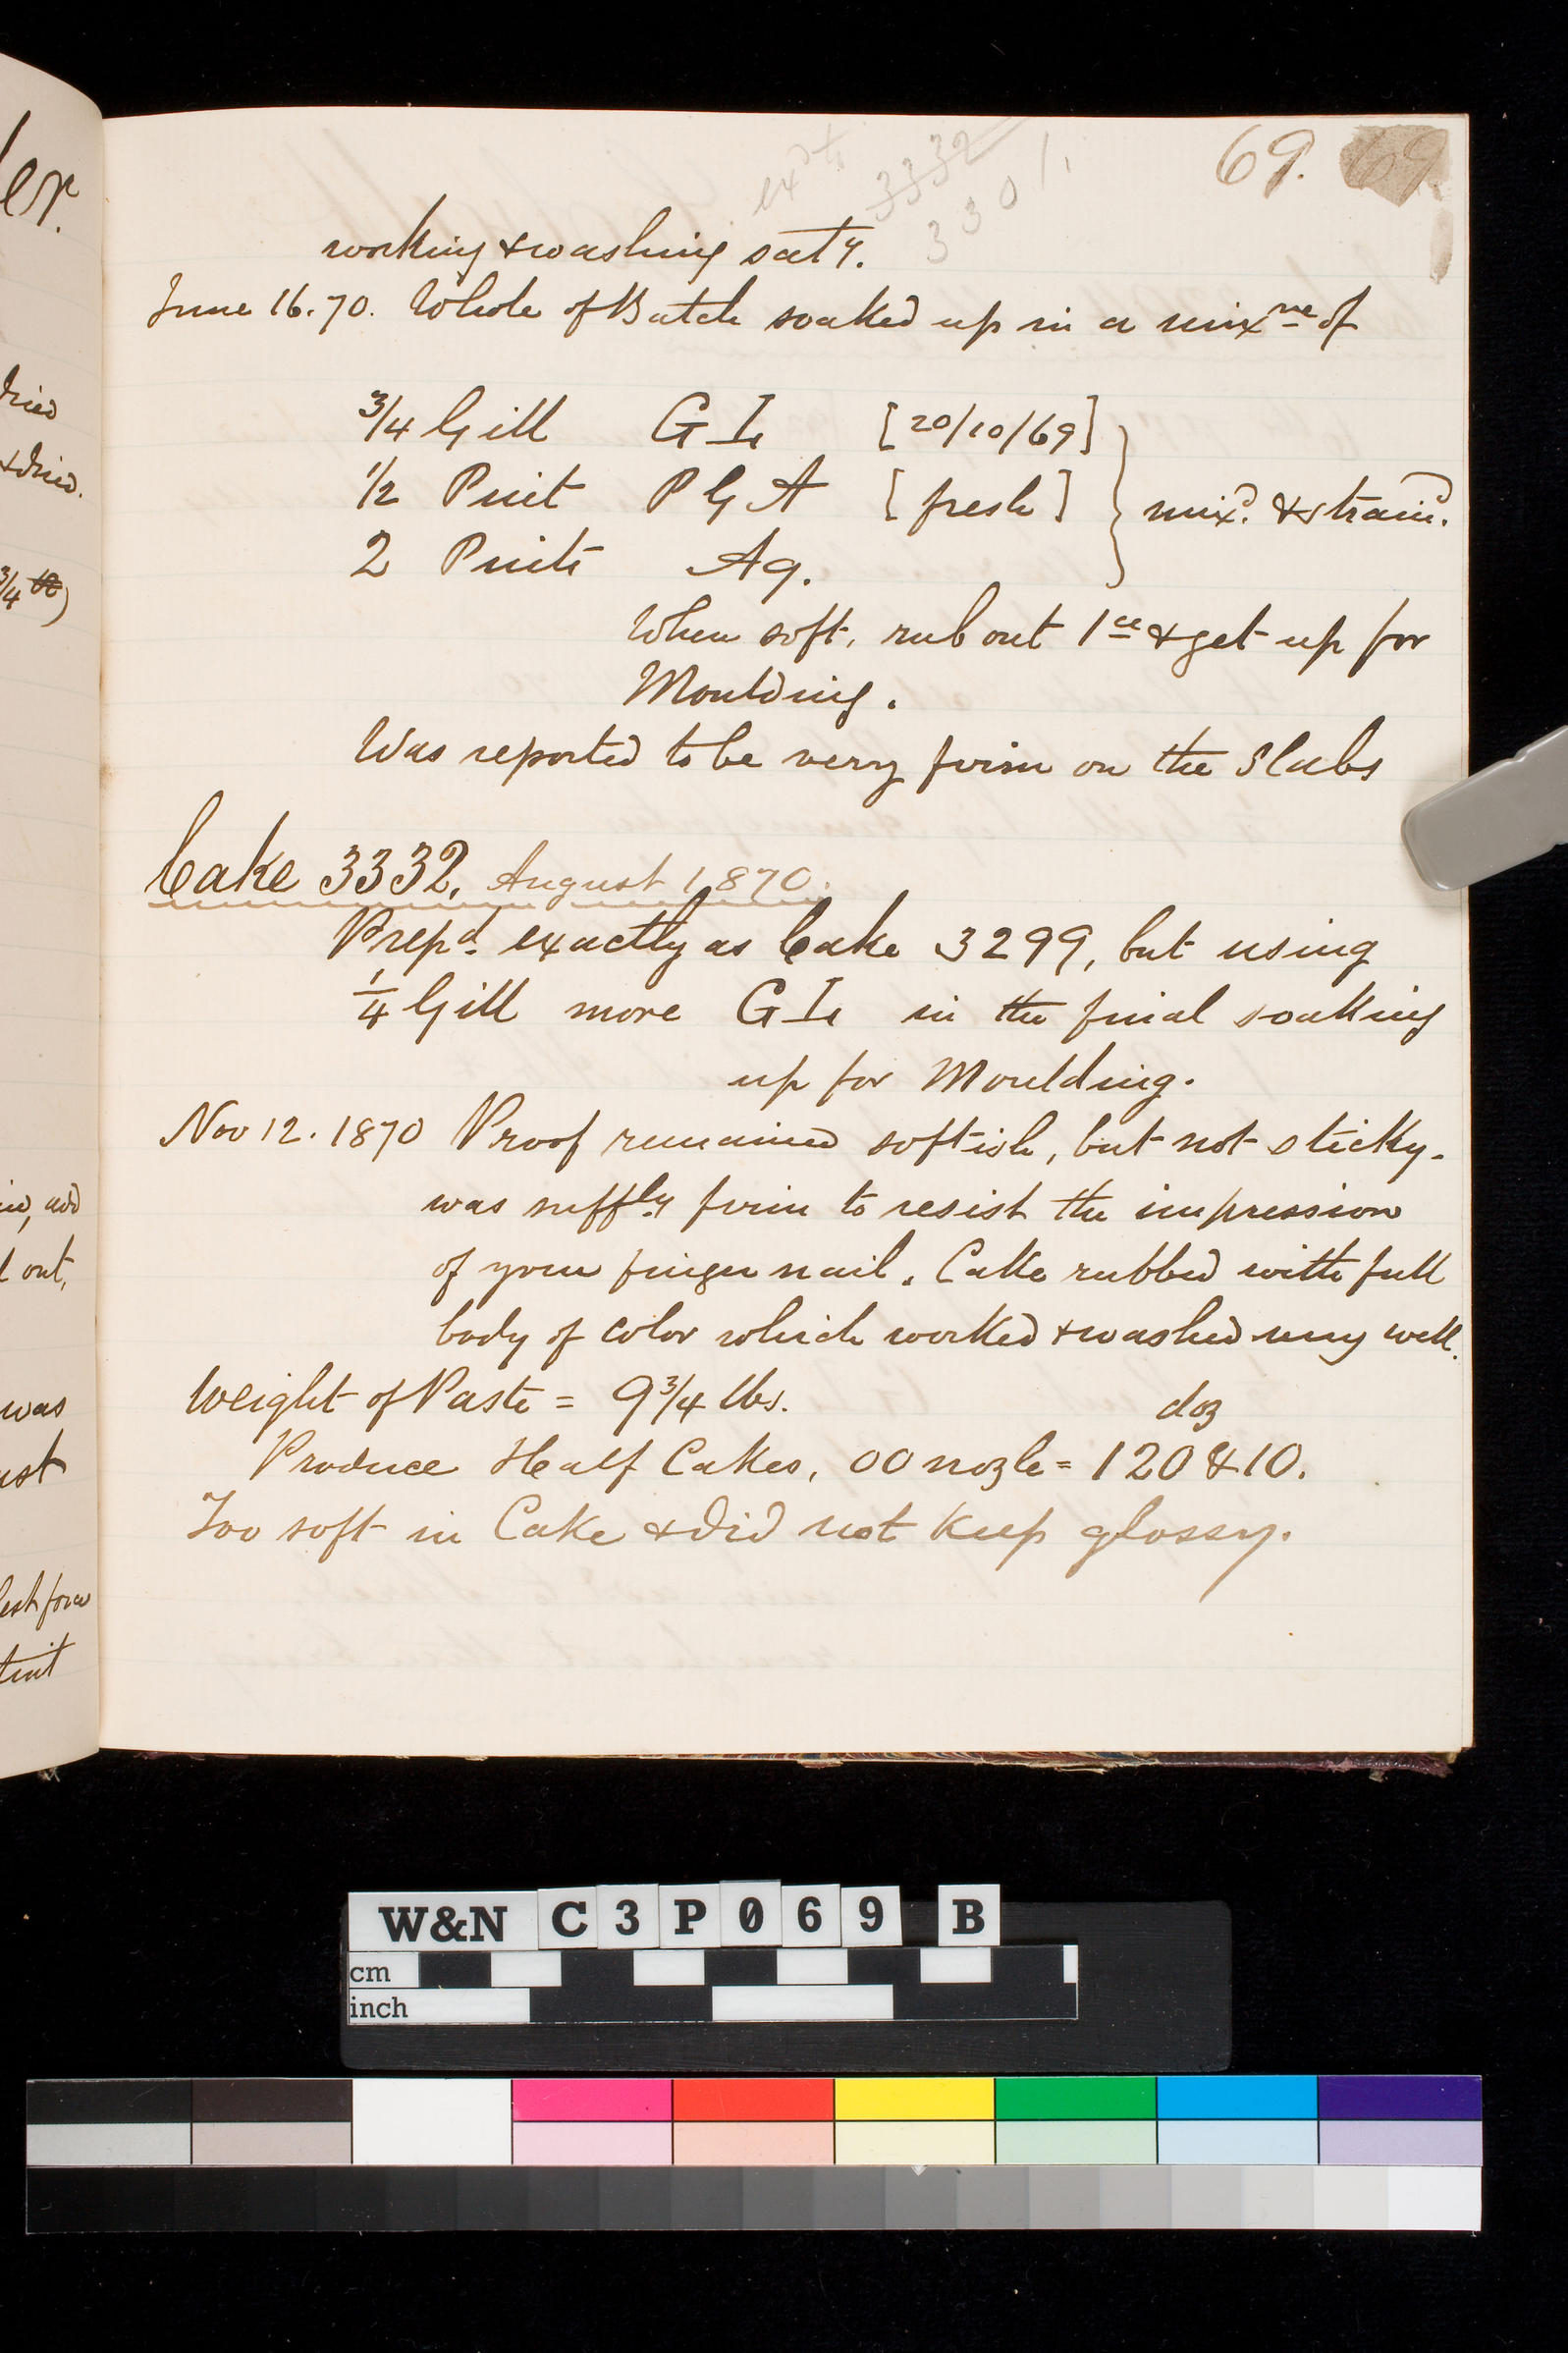 ler.
dried
& dried.
3/4 lb)
add
out,
was
tint
exd to 3332
3301.
69. 69
working & washing satʸ.
June 16. 70. Whole of Batch soaked up in a mixʳᵉ of
3/4 Gill GL [20/10/69]
1/2 Pint P G A [fresh] } mixᵈ. & strainᵈ.
2 Pints Aq.
When soft, rub out 1ᶜᵉ & get up for
Moulding.
Was reported to be very firm on the Slabs
Cake 3332. August 1870.
Prepᵈ. exactly as Cake 3299, but using
1/4 Gill more GL in the final soaking
up for Moulding.
Nov 12. 1870 Proof remained softish, but not sticky.
was suffˡʸ firm to resist the impression
of your finger nail. Cake rubbed with full
body of color which worked & washed very well.
Weight of Paste = 9 3/4 lbs.
doz
Produce Half Cakes, 00 nozle = 120 & 10.
Too soft in Cake & did not keep glossy.
W&N C3P069 B
cm
inch